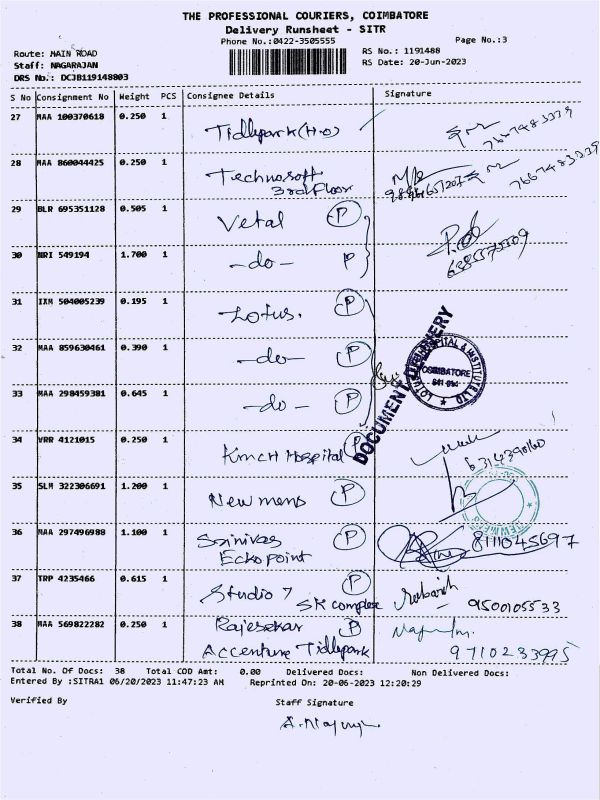 THE PROFESSIONAL COURIERS, COIMBATORE
Delivery Runsheet - SITR
Phone No.:0422-3505555
Page No.:3
Route: MAIN ROAD
RS No.: 1191488
Staff: NAGARAJAN
RS Date: 20-Jun-2023
DRS No.: DCJB119148803
S No Consignment No Weight PCS Consignee Details Signature
27 MAA 100370618 0.250 1 Tidlypark(H.O)
7667483339
28 MAA 860044425 0.250 1 Technosoft
3rd Floor
7667483339
29 BLR 695351128 0.505 1 Vetal P
30 NRI 549194 1.700 1 -do- P
31 IXM 504005239 0.195 1 Lotus. P
32 MAA 859630461 0.390 1 -do- P
33 MAA 298459381 0.645 1 -do- P
DOCUMENT DELIVERY
COIMBATORE
641 014
34 VRR 4121015 0.250 1 KMCH Hospital P
6314390160
35 SLM 322306691 1.200 1 New mens P
36 MAA 297496988 1.100 1 Srinivas P 8111045697
Ecko point
37 TRP 4235466 0.615 1 Studio 7 P
SK complex 9500105533
38 MAA 569822282 0.250 1 Rajesekar P
Accenture Tidlypark 9710233995
Total No. Of Docs: 38 Total COD Amt: 0.00 Delivered Docs: Non Delivered Docs:
Entered By :SITRA1 06/20/2023 11:47:23 AM Reprinted On: 20-06-2023 12:20:29
Verified By Staff Signature